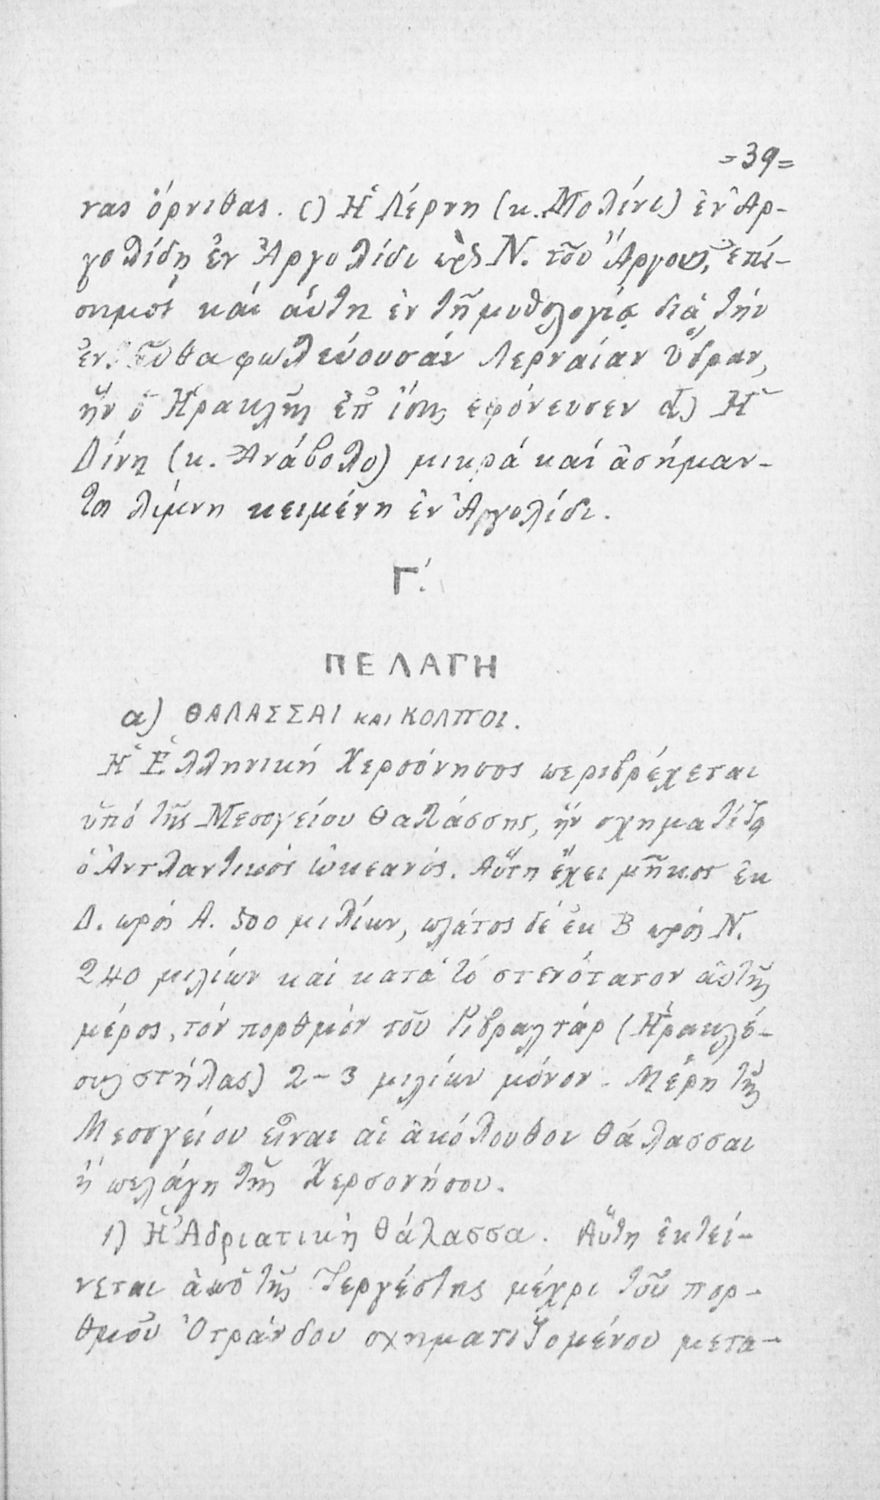 =39=
νας ὄρνιθας. c) Ἡ Λέρνη (κ. Μολίνι) ἐν Ἀρ-
γολίδη ἐν Ἀργολίδι πρὸς Ν. τοῦ Ἄργους, ἐπί-
σημος καὶ αὕτη ἐν τῇ μυθολογίᾳ διὰ τὴν
ἐνταῦθα φωλεύουσαν Λερναίαν ὕδραν,
ἣν ὁ Ἡρακλῆς ἐπ' ἴσης εφόνευσεν d) Ἡ
Δίνη (κ. Ἀνάβολο) μικρά καί ἀσήμαν-
τος λίμνη κειμένη ἐν Ἀργολίδι.
Γ΄.
ΠΕΛΑΓΗ
α) ΘΑΛΑΣΣΑΙ ΚΑΙ ΚΟΛΠΟΙ.
Ἡ Ἑλληνική Χερσόνησος περιβρέχεται
ὑπό τῆς Μεσογείου θαλάσσης, ἣν σχηματίζει
ὁ Ἀντλαντικός ὠκεανός. Αὕτη ἔχει μῆκος ἐκ
Δ. πρός Α. 500 μιλίων, πλάτος δέ ἐκ Β πρός Ν.
240 μιλίων καί κατά τό στενότατον αὐτῆς
μέρος, τόν πορθμόν τοῦ Γιβραλτάρ (Ἡρακλέ-
ους στήλας) 2-3 μιλίων μόνον. Μέρη τῆς
Μεσογείου εἶναι αἱ ἀκόλουθοι θάλασσαι
ἤ πελάγη τῆς Χερσονήσου.
1) Ἡ Ἀδριατική θάλασσα. Αὕτη ἐκτεί-
νεται ἀπό τῆς Τεργέστης μέχρι τοῦ πορ-
θμοῦ Ὀτράνδου σχηματιζομένου μετα-